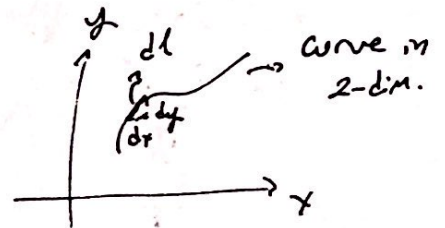 y
dl
curve in
2-dim.
dy
dx
x